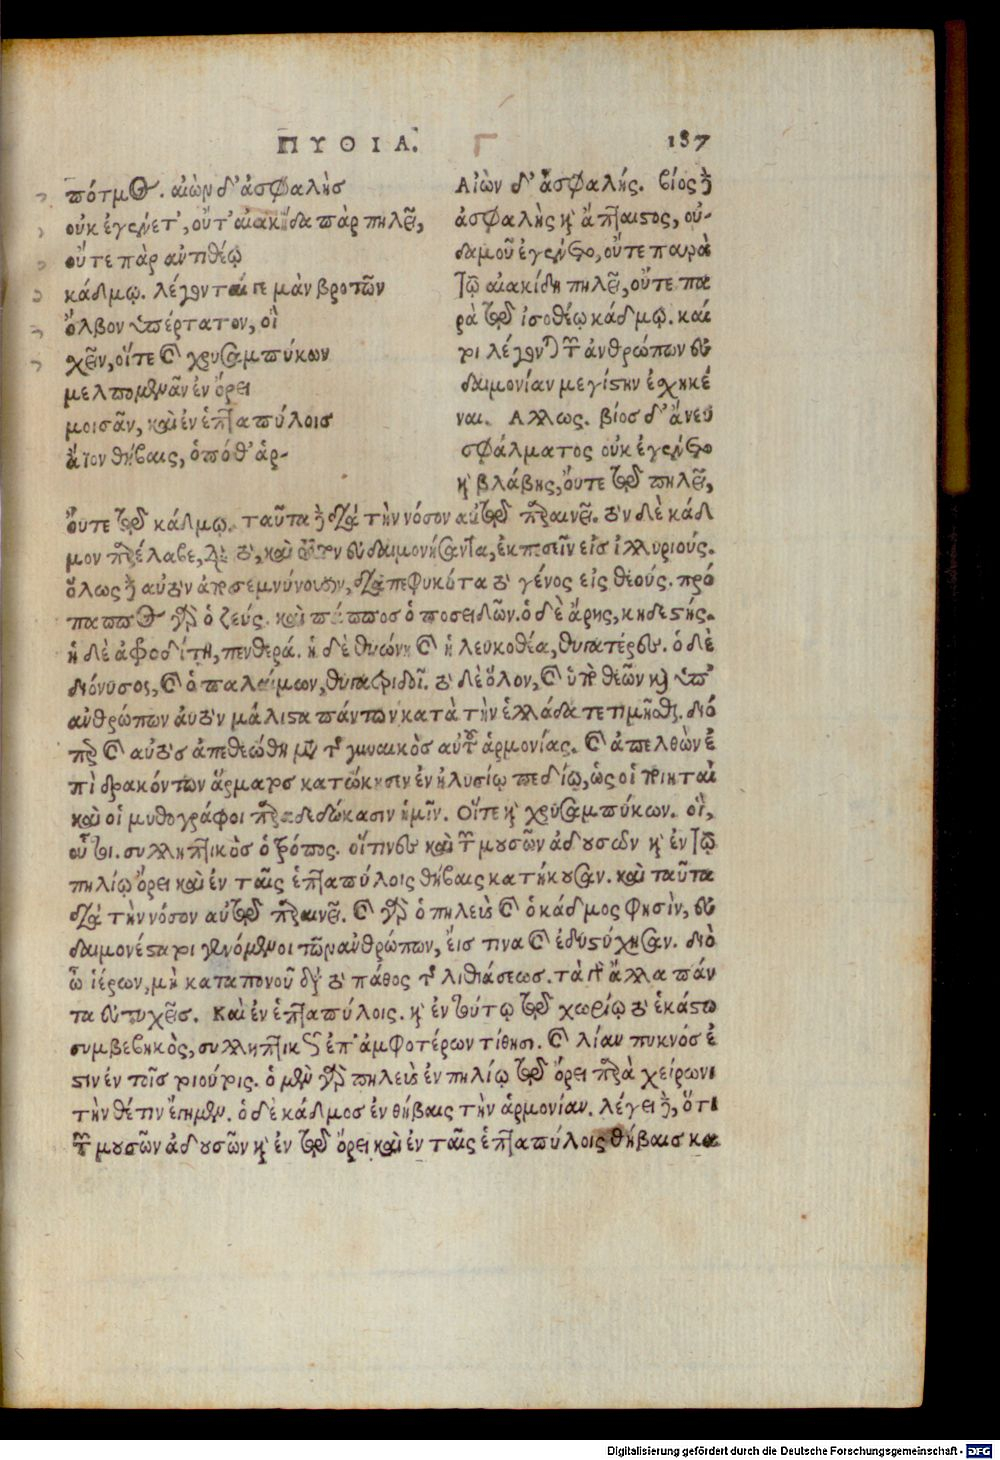 ΠΥΘΙΑ. Γ 187
πότμος. αἰὼν δ' ἀσφαλὴσ
οὐκ ἐγένετ', οὔτ' αἰακίδα πὰρ πηλεῖ,
οὔτε πὰρ αντιθέῳ
κάδμῳ. λέγονται γε μὰν βροτῶν
ὄλβον ὑπέρτατον, οἳ
χεῖν, οἵτε καὶ χρυσαμπύκων
μελπομενᾶν ἐν ὄρει
μοισᾶν, καὶ ἐν ἑπταπύλοις
ἄϊον θήβαις, ὁπόθ' ἁρ-
Αἰὼν δ' ἀσφαλής. βίος δὲ
ἀσφαλὴς καὶ ἄπταιστος, οὐ-
δαμοῦ ἐγένετο, οὔτε παρὰ
τῷ αἰακίδῃ πηλεῖ, οὔτε πα
ρὰ τῷ ἰσοθέῳ κάδμῳ. καί
τοι λέγονται τῶν ἀνθρώπων εὐ
δαιμονίαν μεγίστην ἐσχηκέ
ναι. Αλλως. βίος δ' ἄνευ
σφάλματος οὐκ ἐγένετο
καὶ βλάβης, οὔτε τῷ πηλεῖ,
οὔτε τῷ κάδμῳ. ταῦτα δὲ διὰ τὴν νόσον αὐτῷ παραινεῖ. τὸν δὲ κάδ
μον παρέλαβε, διὰ τὸ, καὶ αὐτὸν εὐδαιμονήσαντα, ἐκπεσεῖν εἰς ἰλλυριούς.
ὅλως δὲ αὐτὸν ἀποσεμνύνουσιν, διὰ πεφυκότα τὸ γένος εἰς θεούς. πρό
παππος γὰρ ὁ ζεύς. καὶ πάππος ὁ ποσειδῶν. ὁ δὲ ἄρης, κηδεστής.
ἡ δὲ ἀφροδίτη, πενθερά. ἡ δὲ θυώνη καὶ ἡ λευκοθέα, θυγατέρες. ὁ δὲ
διόνυσος, καὶ ὁ παλαίμων, θυγατριδοῖ. τὸ δὲ ὅλον, καὶ ὑπὸ θεῶν καὶ ὑπ'
ανθρώπων αὐτὸν μάλιστα πάντων κατὰ τὴν ἑλλάδα τετιμῆσθαι. διό
περ καὶ αὐτὸς ἀπεθεώθη μετὰ τῆς γυναικὸς αὐτοῦ ἁρμονίας. καὶ ἀπελθὼν ἐ
πὶ δρακόντων ἅρματος κατῴκησεν ἐν ἠλυσίῳ πεδίῳ, ὡς οἱ ποιηταὶ
καὶ οἱ μυθογράφοι παραδεδώκασιν ἡμῖν. Οἵτε καὶ χρυσαμπύκων. οἳ,
οὗτοι. συλληπτικὸς ὁ τρόπος. οἵτινες καὶ τῶν μουσῶν ᾀδουσῶν καὶ ἐν τῷ
πηλίῳ ὄρει καὶ ἐν ταῖς ἑπταπύλοις θήβαις κατήκουσαν. καὶ ταῦτα
διὰ τὴν νόσον αὐτῷ παραινεῖ. καὶ γὰρ ὁ πηλεὺς καὶ ὁ κάδμος φησὶν, εὐ
δαιμονέστατοι γενόμενοι τῶν ανθρώπων, ἔις τινα καὶ ἐδυστύχησαν. διὸ
ὦ ἱέρων, μὴ καταπονοῦ διὰ τὸ πάθος τῆς λιθιάσεως. τὰ γὰρ ἄλλα πάν
τα εὐτυχεῖς. Καὶ ἐν ἑπταπύλοις. καὶ ἐν τούτῳ τῷ χωρίῳ τὸ ἑκάστῳ
συμβεβηκὸς, συλληπτικῶς ἐπ' ἀμφοτέρων τίθησι. καὶ λίαν πυκνός ἐ
στιν ἐν τοῖς τοιούτοις. ὁ μὲν γὰρ πηλεὺς ἐν πηλίῳ τῷ ὄρει παρὰ χείρωνι
τὴν θέτιν ἔγημεν. ὁ δὲ κάδμος ἐν θήβαις τὴν ἁρμονίαν. λέγει δὲ, ὅτι
τῶν μουσῶν ᾀδουσῶν καὶ ἐν τῷ ὄρει καὶ ἐν ταῖς ἑπταπύλοις θήβαις κα
Digitalisierung gefördert durch die Deutsche Forschungsgemeinschaft - DFG